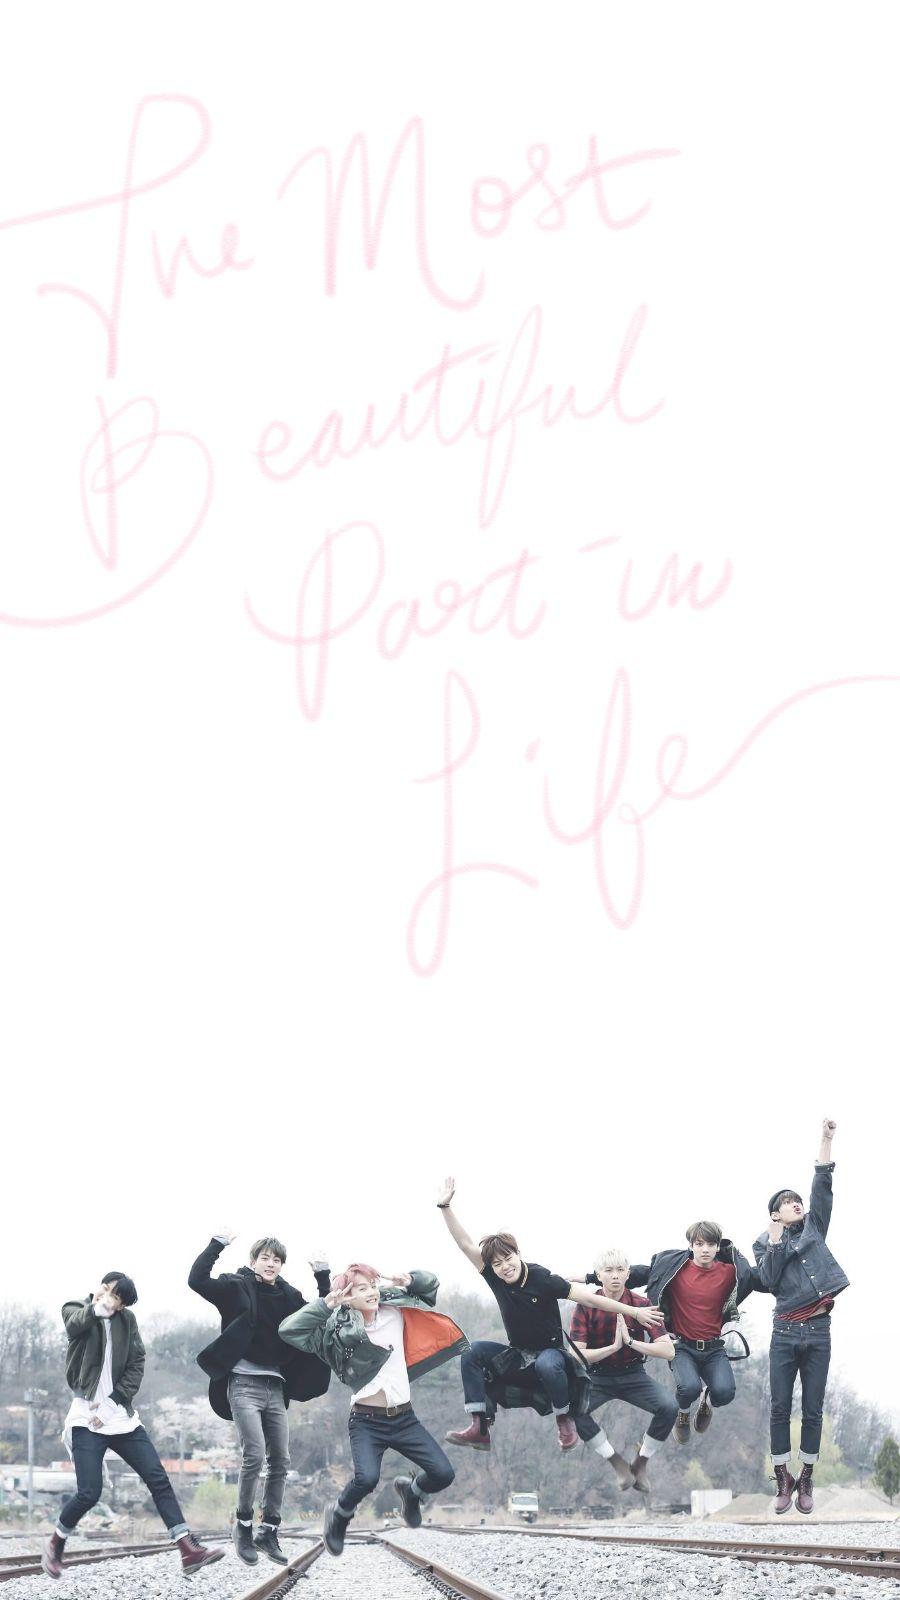 The Most
Beautiful
Part in
Life